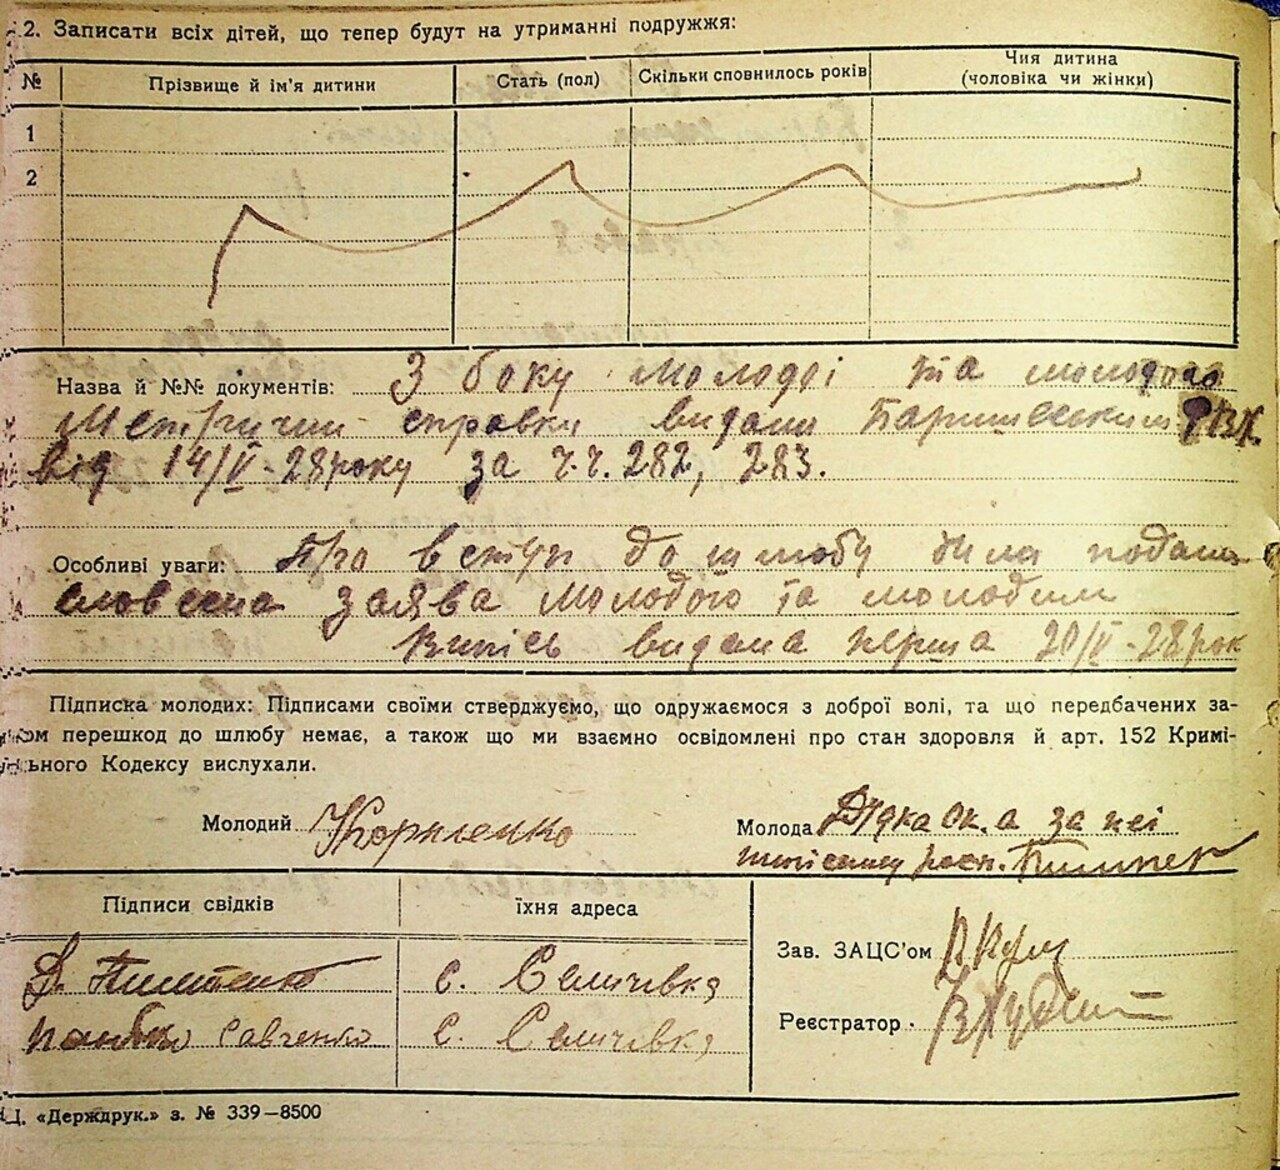 2. Записати всіх дітей, що тепер будут на утриманні подружжя:
№ Прізвище й ім'я дитини Стать (пол) Скільки сповнилось років Чия дитина (чоловіка чи жінки)
1
2
Назва й №№ документів: З боку молодої та молодого
Метричні справки видані Баришевским РВК
від 14/V-28 року за ч.ч. 282, 283.
Особливі уваги: Про вступ до шлюбу була подана
словесна заява молодого та молодим
Випісь видана перша 20/V-28 рок
Підписка молодих: Підписами своїми стверджуємо, що одружаємося з доброї волі, та що передбачених за-
ом перешкод до шлюбу немає, а також що ми взаємно освідомлені про стан здоровля й арт. 152 Кримі-
ьного Кодексу вислухали.
Молодий Корнієнко
Молода за неї
Підписи свідків їхня адреса
с. Селичівка
Савченко с. Селичівка
Зав. ЗАЦС'ом
Реєстратор
Ц. «Держдрук.» з. № 339—8500